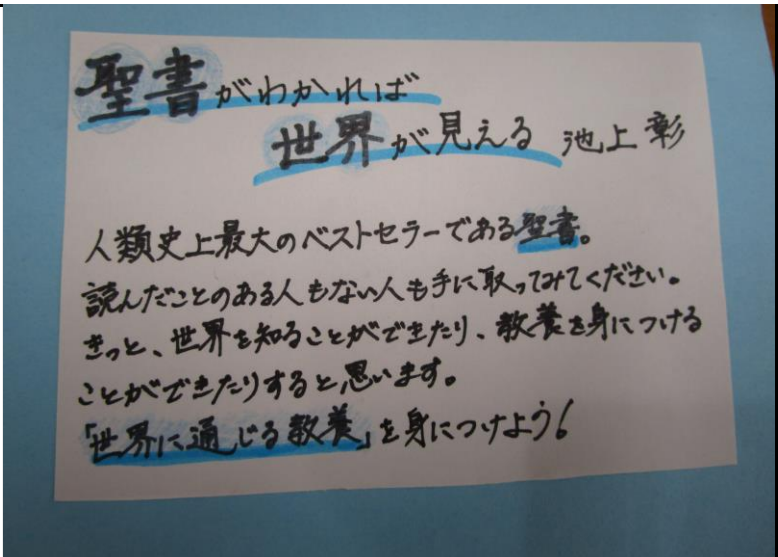 聖書がわかれば
世界が見える 池上彰
人類史上最大のベストセラーである聖書。
読んだことのある人もない人も手に取ってみてください。
きっと、世界を知ることができたり、教養を身につける
ことができたりすると思います。
「世界に通じる教養」を身につけよう!